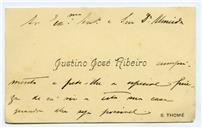 Ao Ex.mo Snr. e Snr. Dr. Almeida
Justino José Ribeiro cumpri-
menta e pede-lhe a especial
de vir a esta sua casa
quando lhe seja possivel
S. THOMÉ